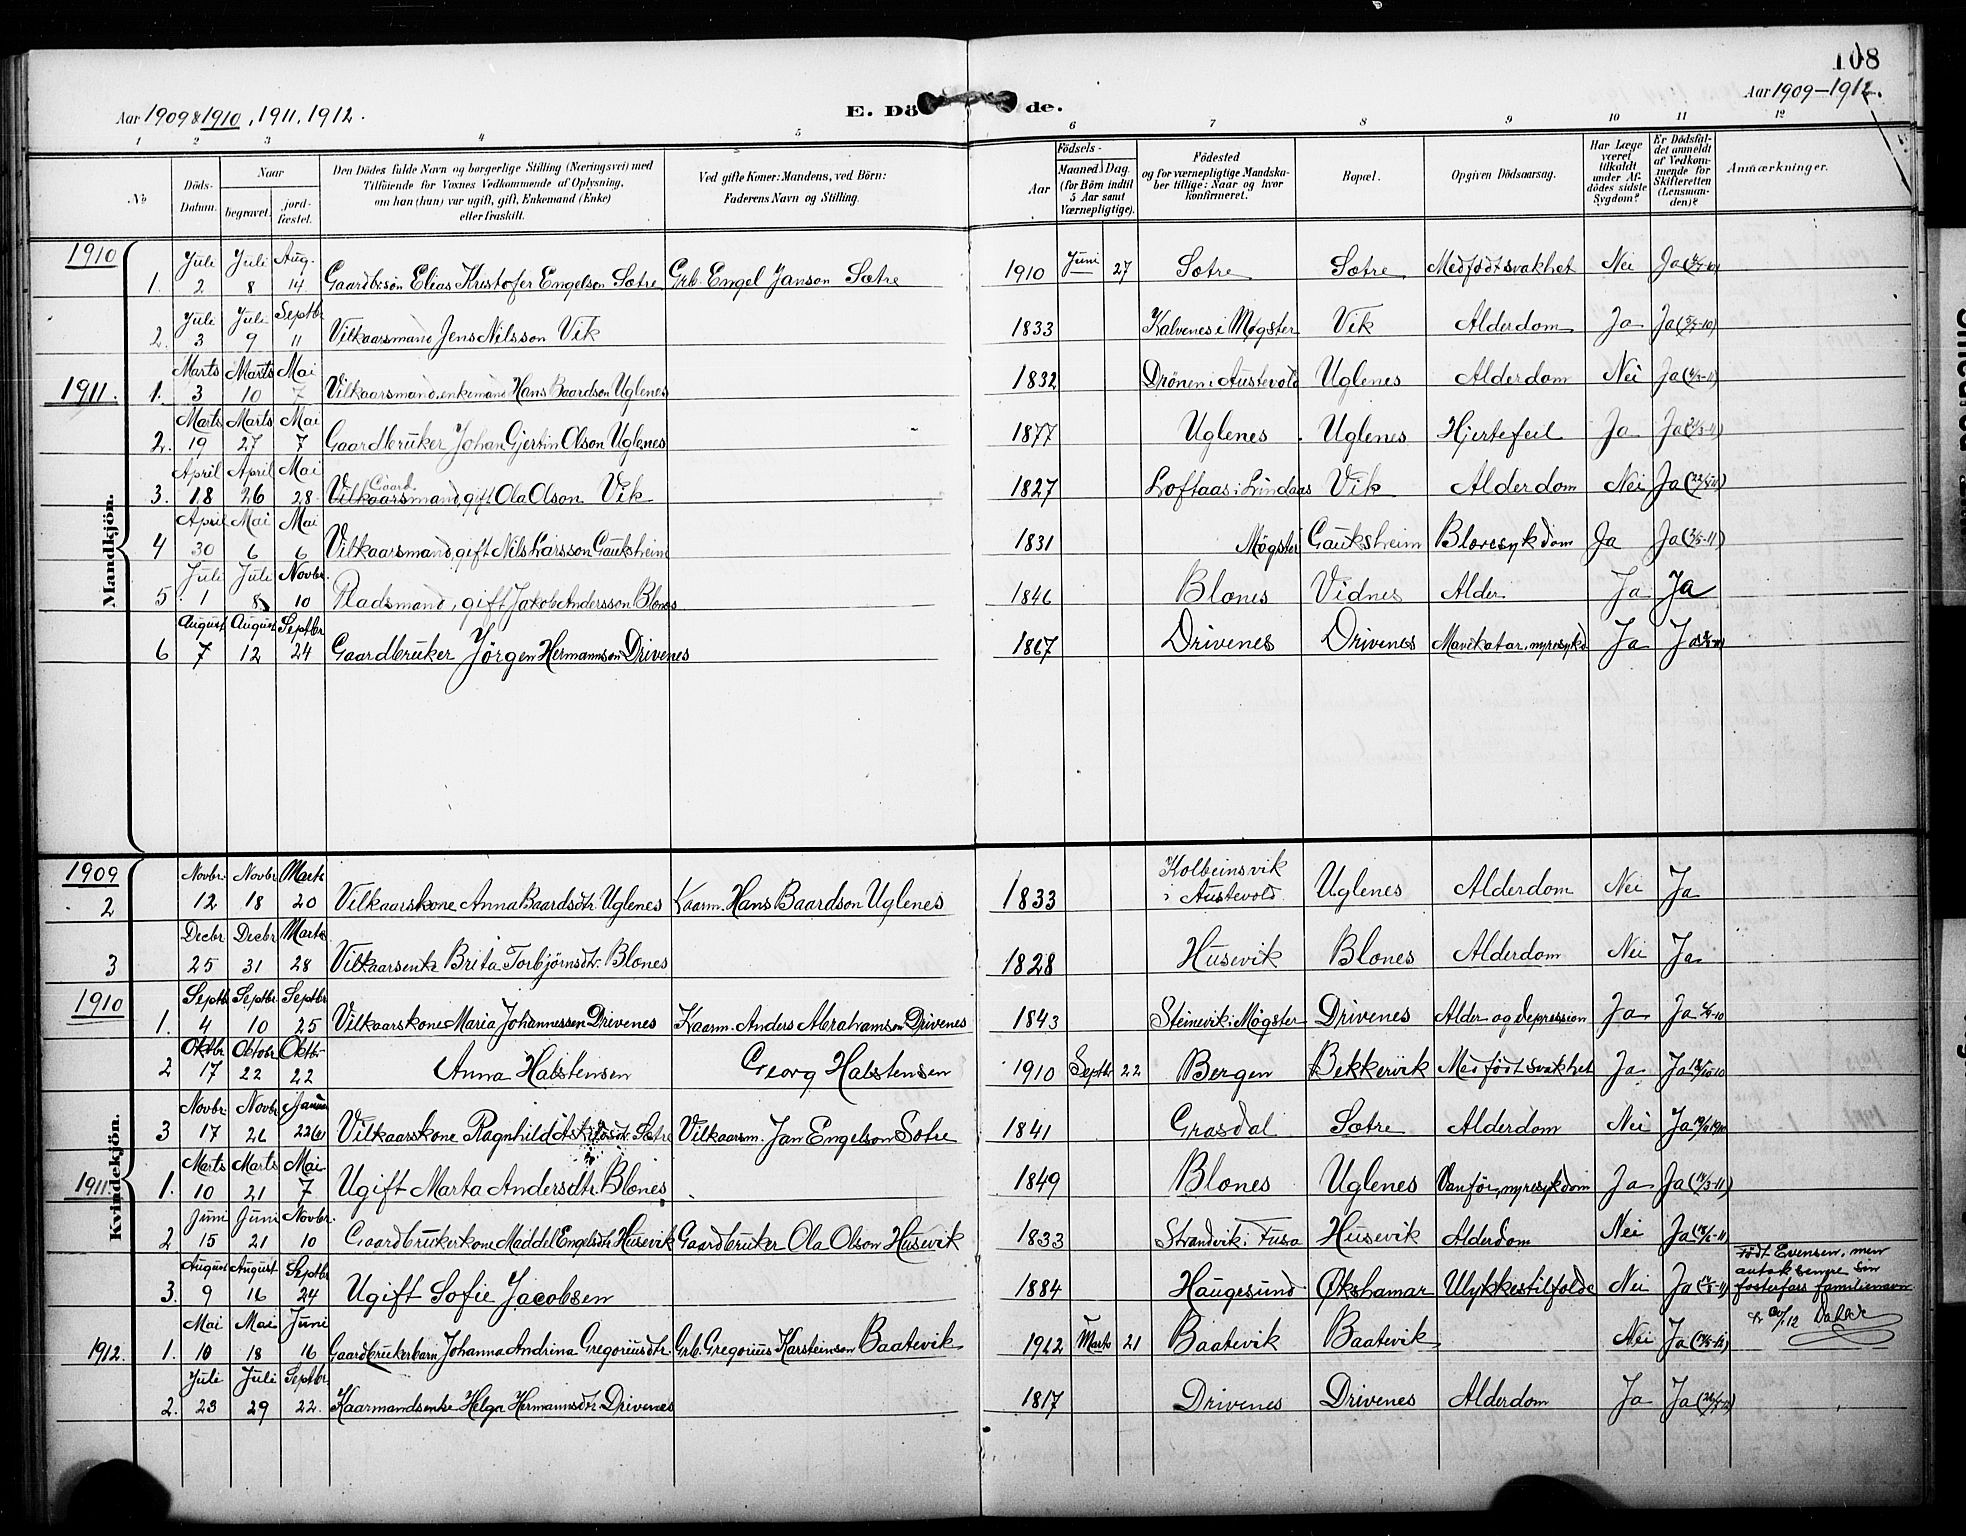 108
Aar 1909 & 1910, 1911, 1912.
E. Döde.
Aar 1909–1912.
1 2 3 4 5 6 7 8 9 10 11 12
No
Döds-Datum.
Naar
begravet.
jord-fæstet.
Den Dödes fulde Navn og borgerlige Stilling (Næringsvei) med
Tilföiende for Voxnes Vedkommende af Oplysning,
om han (hun) var ugift, gift, Enkemand (Enke)
eller fraskilt.
Ved gifte Koner: Mandens, ved Börn:
Faderens Navn og Stilling.
Födsels-
Aar
Maaned. Dag.
(for Börn indtil
5 Aar samt
Værnepligtige).
Födested
og for værnepligtige Mandska-
ber tillige: Naar og hvor
konfirmeret.
Bopæl.
Opgiven Dödsaarsag.
Har Læge
været
tilkaldt
under Af-
dödes sidste
Sygdom?
Er Dödsfal-
det anmeldt
af Vedkom-
mende for
Skifteretten
(Lensman-
den)?
Anmærkninger.
Mandkjön.
1910
1. Juli 2 Juli 8 Aug. 14 Gaardbr.sön Elias Kristofer Engelson Sætre Grb. Engel Janson Sætre 1910 Juni 27 Sætre Sætre Medfödt svakhet Nei Ja
2. Juli 3 Juli 9 Septbr 11 Vilkaarsmand Jens Nilsson Vik 1833 Kalvenes i Møgster Vik Alderdom Ja Ja (5/7-10)
1911.
1. Marts 3 Marts 10 Mai 7 Vilkaarsmand, enkemand Hans Baardson Uglenes 1832 Drönen i Austevold Uglenes Alderdom Nei Ja
2. Marts 19 Marts 27 Mai 7 Gaardbruker Johan Gjertin Olson Uglenes 1877 Uglenes Uglenes Hjertefeil Ja Ja
3. April 18 April 26 Mai 28 Vilkaarsmand, gift Ola Olson Vik Gaard 1827 Loftaas i Lindaas Vik Alderdom Nei Ja
4 April 30 Mai 6 Mai 6 Vilkaarsmand, gift Nils Larsson Gauksheim 1831 Møgster Gauksheim Blæresykdom Ja Ja
5 Juli 1 Juli 8 Novbr. 10 Pladsmand, gift Jakob Andersson Blones 1846 Blones Vidnes Alder Ja Ja
6 August 7 August 12 Septbr 24 Gaardbruker Jörgen Hermannson Drivenes 1867 Drivenes Drivenes Mavekatar, nyresykd Ja Ja
Kvindekjön.
1909
2 Novbr. 12 Novbr 18 Marts 20 Vilkaarskone Anna Baardsdtr. Uglenes Kaarm. Hans Baardson Uglenes 1833 Kolbeinsvik i Austevold Uglenes Alderdom Nei Ja
3 Decbr 25 Decbr 31 Marts 28 Vilkaarsenke Brita Torbjörnsdtr. Blones 1828 Husevik Blones Alderdom Nei Ja
1910
1. Septbr 4 Septbr 10 Septbr 25 Vilkaarskone Maria Johannessen Drivenes Kaarm. Anders Abrahamson Drivenes 1843 Steinevik i Møgster Drivenes Alder og depression Ja Ja
2 Oktbr 17 Oktobr 22 Oktbr 22 Anna Halstensen Georg Halstensen 1910 Septbr 22 Bergen Bekkervik Medfödt svakhet Ja Ja
3 Novbr. 17 Novbr 26 Januar 22 Vilkaarskone Ragnhild Sætre Vilkaarsm. Jan Engelson Sætre 1841 Grasdal Sætre Alderdom Nei Ja
1911.
1. Marts 10 Marts 21 Mai 7 Ugift Marta Andersdtr. Blones 1849 Blones Uglenes Vanför, nyresykdom Ja Ja
2 Juni 15 Juni 21 Novbr. 10 Gaardbrukerkone Maddel Engelsdtr Husevik Gaardbruker Ola Olson Husevik 1833 Strandvik i Fusa Husevik Alderdom Nei Ja
3. August 9 August 16 Septbr 24 Ugift Sofie Jacobsen 1884 Haugesund Økshamar Ulykkestilfælde Nei Ja Født Evensen, men antok senere sin fosterfars familienavn
1912.
1. Mai 10 Mai 18 Juni 16 Gaardbrukerbarn Johanna Andrina Gregoriusdtr. Grb. Gregorius Karsteinson Baatevik 1912 Marts 21 Baatevik Baatevik Nei Ja
2. Juli 23 Juli 29 Septbr 22. Kaarmandsenke Helga Hermannsdtr Drivenes 1817 Drivenes Drivenes Alderdom Ja Ja